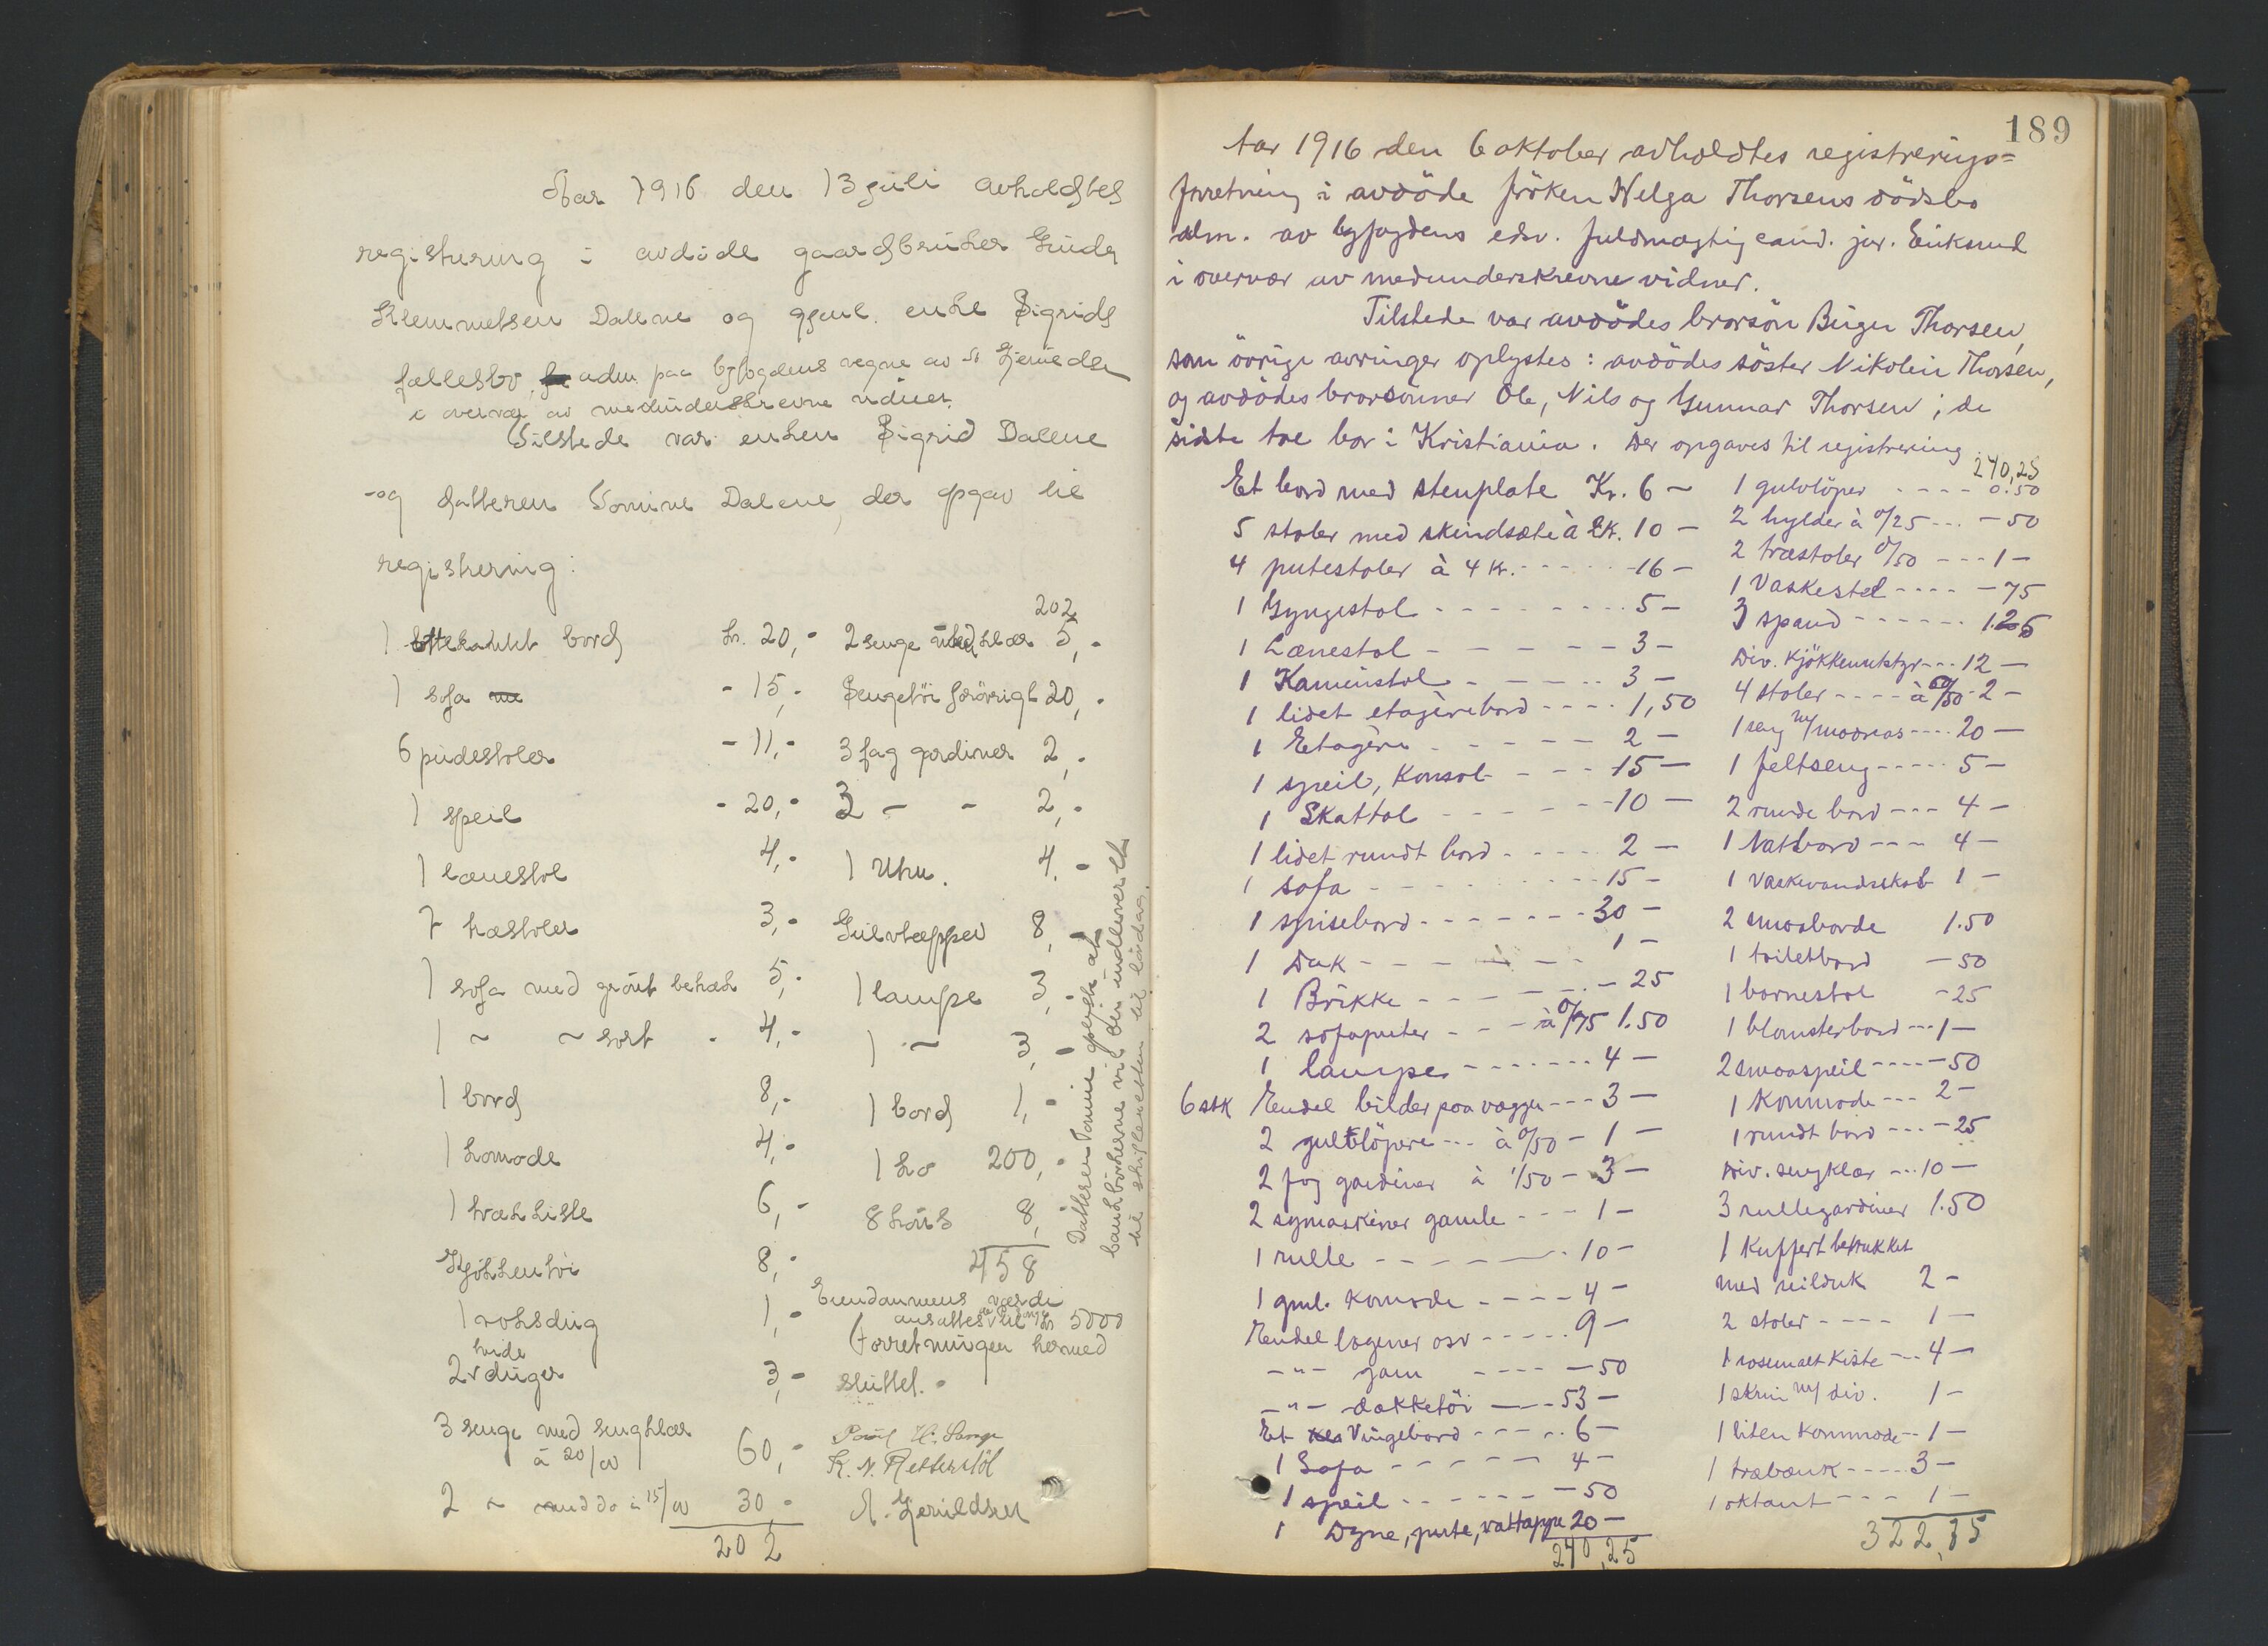 Aar 1916 den 13 juli avholdtes
registrering i avdöde gaardbruker Gunder
Klemmetsen Dalene og gjenl. enke Sigrids
fællesbo, adm. paa byfogdens vegne av A Gjerulds
i overvær av medunderskrevne vidner.
Tilstede var enken Sigrid Dalene
og datteren Tomine Dalene, der opgav til
registrering:
1 ottekantet bord kr. 20,-
1 sofa - 15,-
6 pudestoler - 11,-
1 speil - 20,-
1 lænestol 4,-
7 træstoler 3,-
1 sofa med grönt betræk 5,-
1 ~ ~ sort - 4,-
1 bord 8,-
1 komode 4,-
1 trækiste 6,-
Kjökkentöi 8,-
1 voksdug 1,-
2 hvide duger 3,-
3 senge med sengklær
à 20/00 60,-
2 ~ med do à 15/00 30,-
202
202
2 senge med klær 5,-
Sengetöi forövrigt 20,-
3 fag gardiner 2,-
3 - - 2,-
1 Uhr. 4,-
Gulvtæpper 8,-
1 lampe 3,-
1 ~ 3,-
1 bord 1,-
1 ko 200,-
8 höns 8,-
458
Eiendommens værdi
ansattes til kr 5000
Forretningen hermed
sluttet.
Paul H. Lange
K. N. Retterstöl
A. Gjeruldsen
Datteren Tomine oplyste at
bankbökerne vil bli indleveret
til skifteretten til lördag.
189
Aar 1916 den 6 oktober avholdtes registrerings=
forretning i avdöde fröken Helga Thorsens dödsbo
adm. av byfogdens edsv. fuldmægtig cand. jur. Eriksrud
i overvær av medunderskrevne vidner.
Tilstede var avdödes brorsön Birger Thorsen,
som övrige arvinger oplystes: avdödes söster Nikolin Thorsen,
og avdödes brorsönner Ole, Nils og Gunnar Thorsen; de
sidste toe bor i Kristiania. Der opgaves til registrering
Et bord med stenplate Kr. 6 -
5 stoler med skindsæte à 2 K. 10 -
4 putestoler à 4 kr. - 16 -
1 Gyngestol - 5 -
1 Lænestol - 3 -
1 Kaminstol - 3 -
1 lidet etagèrebord - 1,50
1 Etagère - 2 -
1 speil, Konsol - 15 -
1 Skattol - 10 -
1 lidet rundt bord - 2 -
1 sofa - 15 -
1 spisebord - 30 -
1 Duk - 1 -
1 Brikke - 25
2 sofaputer - à 0/75 1.50
1 lampe - 4 -
6 stk Endel bilder paa vægge - 3 -
2 gulvlöpere - à 0/50 - 1 -
2 fag gardiner à 1/50 - 3 -
2 symaskiner gamle - 1 -
1 rulle - 10 -
1 gml. Komode - 4 -
Endel lagener osv - 9 -
-"- garn - 50
-"- dækketöi - 53 -
Et Vingebord - 6 -
1 Sofa - 4 -
1 speil - 50
1 Dyne, pute, vattæppe 20 -
240,25
240,25
1 gulvlöper - 0.50
2 hylder à 0/25 - 50
2 træstoler 0/50 - 1 -
1 Vaskestel - 75
3 spand - 1.25
Div. Kjökkenutstyr - 12 -
4 stoler - à 0/50 - 2 -
1 seng m/madras - 20 -
1 feltseng - 5 -
2 runde bord - 4 -
1 Natbord - 4 -
1 Vaskevandsskab 1 -
2 smaaborde 1.50
1 toiletbord - 50
1 barnestol - 25
1 blomsterbord - 1 -
2 smaaspeil - 50
1 Kommode - 2 -
1 rundt bord - 25
Div. sengklær - 10 -
3 rullegardiner 1.50
1 Kuffert betrukket
med seilduk 2 -
2 stoler - 1 -
1 rosemalt kiste - 4 -
1 skrin m/ div. 1 -
1 liten kommode - 1 -
1 træbænk - 3 -
1 oktant - 1 -
322,75